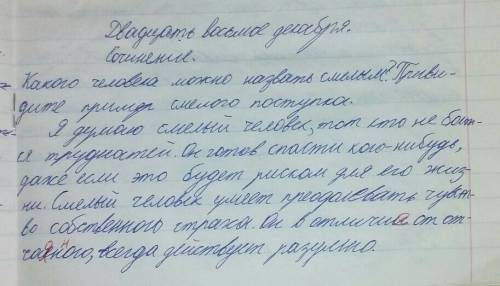 Двадцать восьмое декабря.
Сочинение.
Какого человека можно назвать смелым? Приви-
дите пример смелого поступка.
Я думаю смелый человек, тот кто не боит-
ся трудностей. Он готов спасти кого-нибудь,
даже если это будет риском для его жиз-
ни. Смелый человек умеет преодолевать чувст-
во собственного страха. Он в отличие от от-
чаянного, всегда действует разумно.